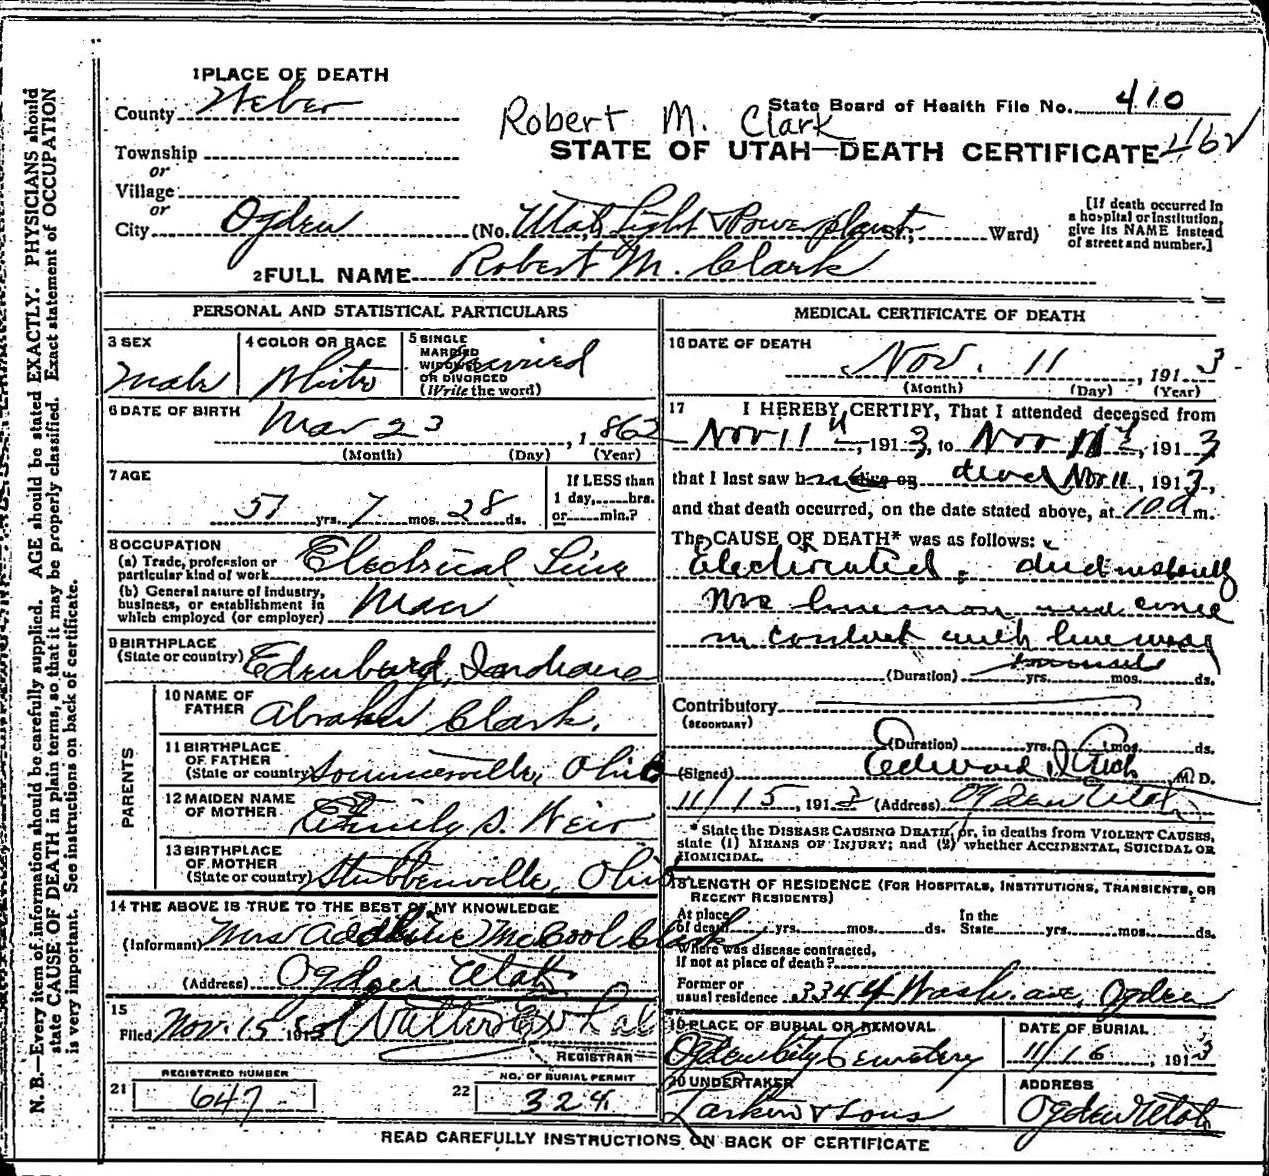 N. B.—Every item of information should be carefully supplied. AGE should be stated EXACTLY. PHYSICIANS should
state CAUSE OF DEATH in plain terms, so that it may be properly classified. Exact statement of OCCUPATION
is very important. See instructions on back of certificate.
1 PLACE OF DEATH
County Weber
State Board of Health File No. 410
Robert M. Clark
Township
STATE OF UTAH—DEATH CERTIFICATE 462
or
Village
or
City Ogden (No. Utah Light & Power plant St.; Ward)
[If death occurred in
a hospital or institution,
give its NAME instead
of street and number.]
2 FULL NAME Robert M. Clark
PERSONAL AND STATISTICAL PARTICULARS
3 SEX
Male
4 COLOR OR RACE
White
5 SINGLE
MARRIED
WIDOWED
OR DIVORCED
(Write the word)
Married
6 DATE OF BIRTH
Mar 23, 1862
(Month) (Day) (Year)
7 AGE
51 yrs. 7 mos. 28 ds.
If LESS than
1 day, hrs.
or min.?
8 OCCUPATION
(a) Trade, profession or
particular kind of work Electrical Line
(b) General nature of industry,
business, or establishment in
which employed (or employer) Man
9 BIRTHPLACE
(State or country) Edinburg, Indiana
PARENTS
10 NAME OF
FATHER Clark.
11 BIRTHPLACE
OF FATHER
(State or country) Ohio
12 MAIDEN NAME
OF MOTHER Emily S. Weir
13 BIRTHPLACE
OF MOTHER
(State or country) Stubbenville, Ohio
14 THE ABOVE IS TRUE TO THE BEST OF MY KNOWLEDGE
(Informant) Mrs McCool Clark
(Address) Ogden Utah
15
Filed Nov. 15 1913
REGISTRAR
21
REGISTERED NUMBER
647
22
NO. OF BURIAL PERMIT
MEDICAL CERTIFICATE OF DEATH
16 DATE OF DEATH
Nov. 11, 1913
(Month) (Day) (Year)
17 I HEREBY CERTIFY, That I attended deceased from
Nov 11, 1913, to Nov 11, 1913
that I last saw h alive on dead Nov 11, 1913,
and that death occurred, on the date stated above, at 10 a m.
The CAUSE OF DEATH* was as follows:
Electrocuted. died instantly
line man and came
in contact with live wires
(Duration) yrs. mos. ds.
Contributory
(SECONDARY)
(Duration) yrs. mos. ds.
(Signed) Edward M. D.
11/15, 1913 (Address) Ogden Utah
* State the DISEASE CAUSING DEATH, or, in deaths from VIOLENT CAUSES,
state (1) MEANS OF INJURY; and (2) whether ACCIDENTAL, SUICIDAL OR
HOMICIDAL.
18 LENGTH OF RESIDENCE (FOR HOSPITALS, INSTITUTIONS, TRANSIENTS, OR
RECENT RESIDENTS)
At place
of death yrs. mos. ds.
In the
State yrs. mos. ds.
Where was disease contracted,
if not at place of death?
Former or
usual residence 3344 Wash. ave, Ogden
19 PLACE OF BURIAL OR REMOVAL
Ogden City Cemetery
DATE OF BURIAL
11/16, 1913
20 UNDERTAKER
Larkin & Sons
ADDRESS
Ogden Utah
READ CAREFULLY INSTRUCTIONS ON BACK OF CERTIFICATE